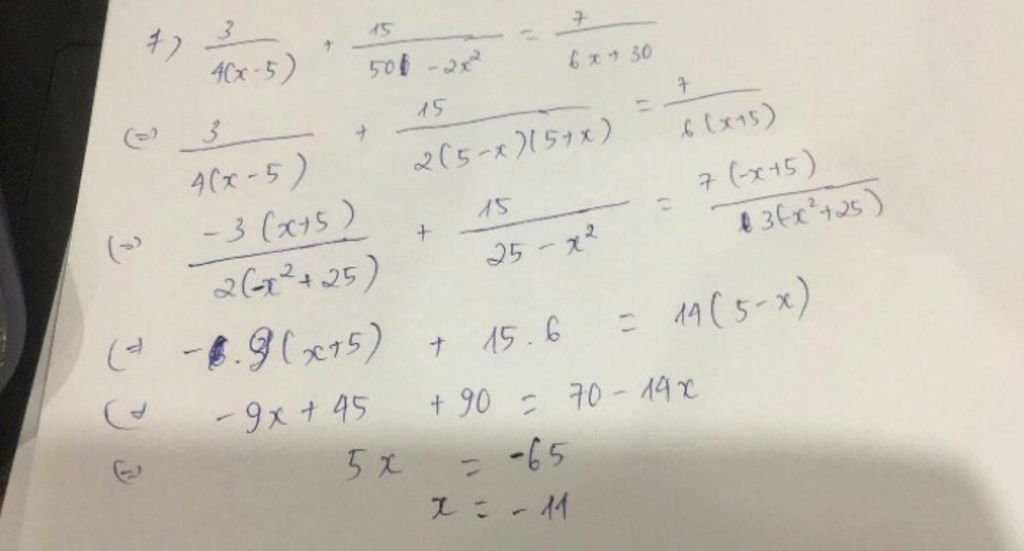 7) 3/(4(x-5)) + 15/(50 - 2x²) = 7/(6x + 30)
(=) 3/(4(x-5)) + 15/(2(5-x)(5+x)) = 7/(6(x+5))
(=) -3(x+5)/(2(-x²+25)) + 15/(25-x²) = 7(-x+5)/(3(-x²+25))
(=) -9(x+5) + 15.6 = 14(5-x)
(=) -9x + 45 + 90 = 70 - 14x
(=) 5x = -65
x = -11